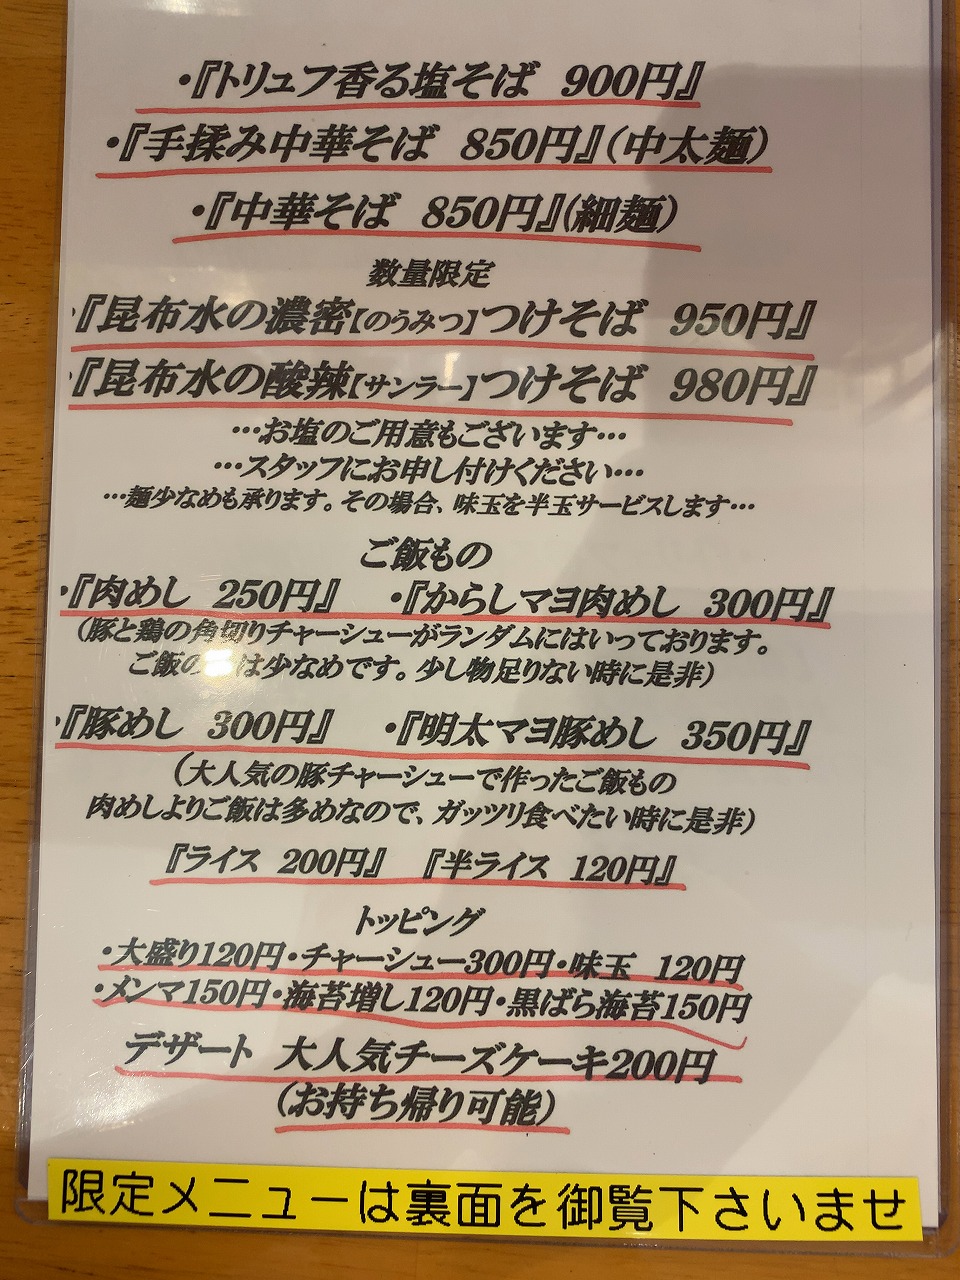 ・『トリュフ香る塩そば 900円』
・『手揉み中華そば 850円』(中太麺)
・『中華そば 850円』(細麺)
数量限定
・『昆布水の濃密【のうみつ】つけそば 950円』
・『昆布水の酸辣【サンラー】つけそば 980円』
…お塩のご用意もございます…
…スタッフにお申し付けください…
…麺少なめも承ります。その場合、味玉を半玉サービスします…
ご飯もの
・『肉めし 250円』 ・『からしマヨ肉めし 300円』
(豚と鶏の角切りチャーシューがランダムにはいっております。
ご飯の は少なめです。少し物足りない時に是非)
・『豚めし 300円』 ・『明太マヨ豚めし 350円』
(大人気の豚チャーシューで作ったご飯もの
肉めしよりご飯は多めなので、ガッツリ食べたい時に是非)
『ライス 200円』 『半ライス 120円』
トッピング
・大盛り120円・チャーシュー300円・味玉 120円
・メンマ150円・海苔増し120円・黒ばら海苔150円
デザート 大人気チーズケーキ200円
(お持ち帰り可能)
限定メニューは裏面を御覧下さいませ